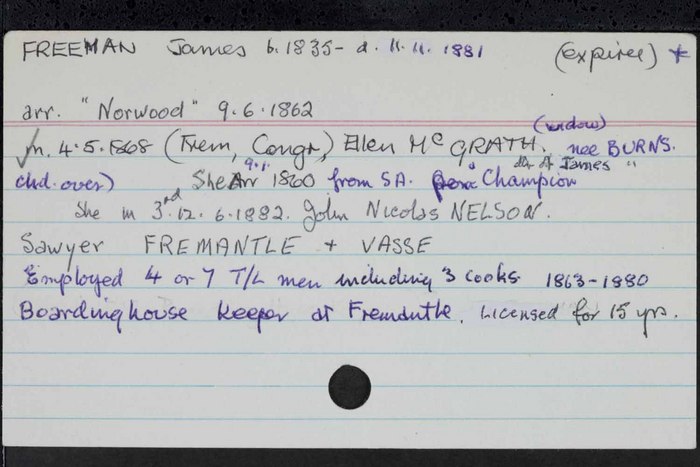 FREEMAN James b. 1835- d. 11.11. 1881 (expiree) *
arr. "Norwood" 9.6.1862
(widow)
✓m. 4.5.1868 (Frem, Congr,) Ellen McGRATH, nee BURNS.
dtr of James "
chd. over) She Arr 9.1. 1860 from SA. per Champion
She m 3rd 12.6.1882. John Nicolas NELSON.
Sawyer FREMANTLE + VASSE
Employed 4 or 7 T/L men including 3 cooks 1863-1880
Boardinghouse keeper at Fremantle. Licensed for 15 yrs.